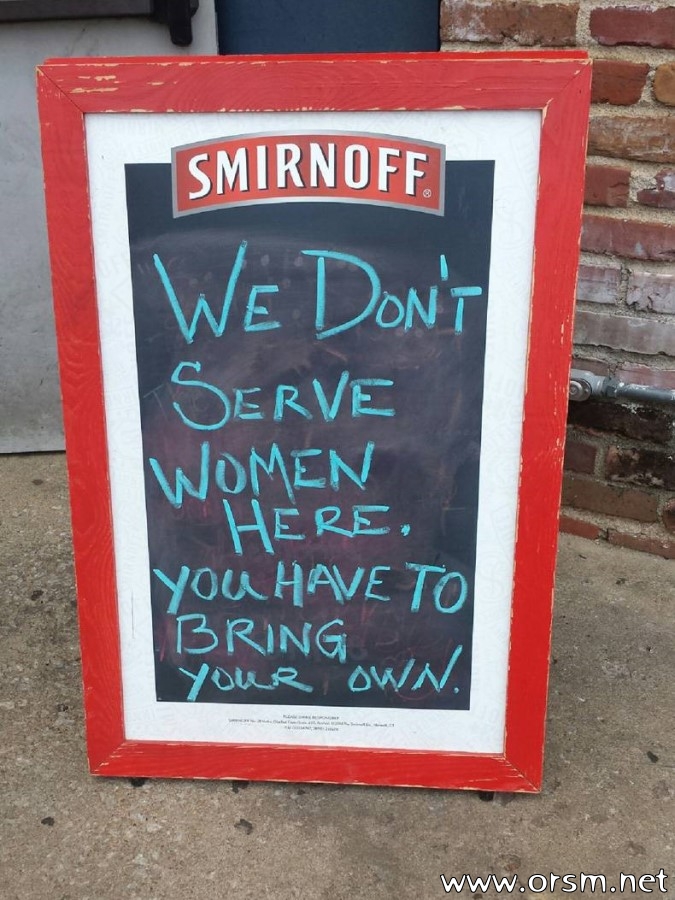 SMIRNOFF®
WE DON'T
SERVE
WOMEN
HERE.
YOU HAVE TO
BRING
YOUR OWN.
PLEASE DRINK RESPONSIBLY
www.orsm.net